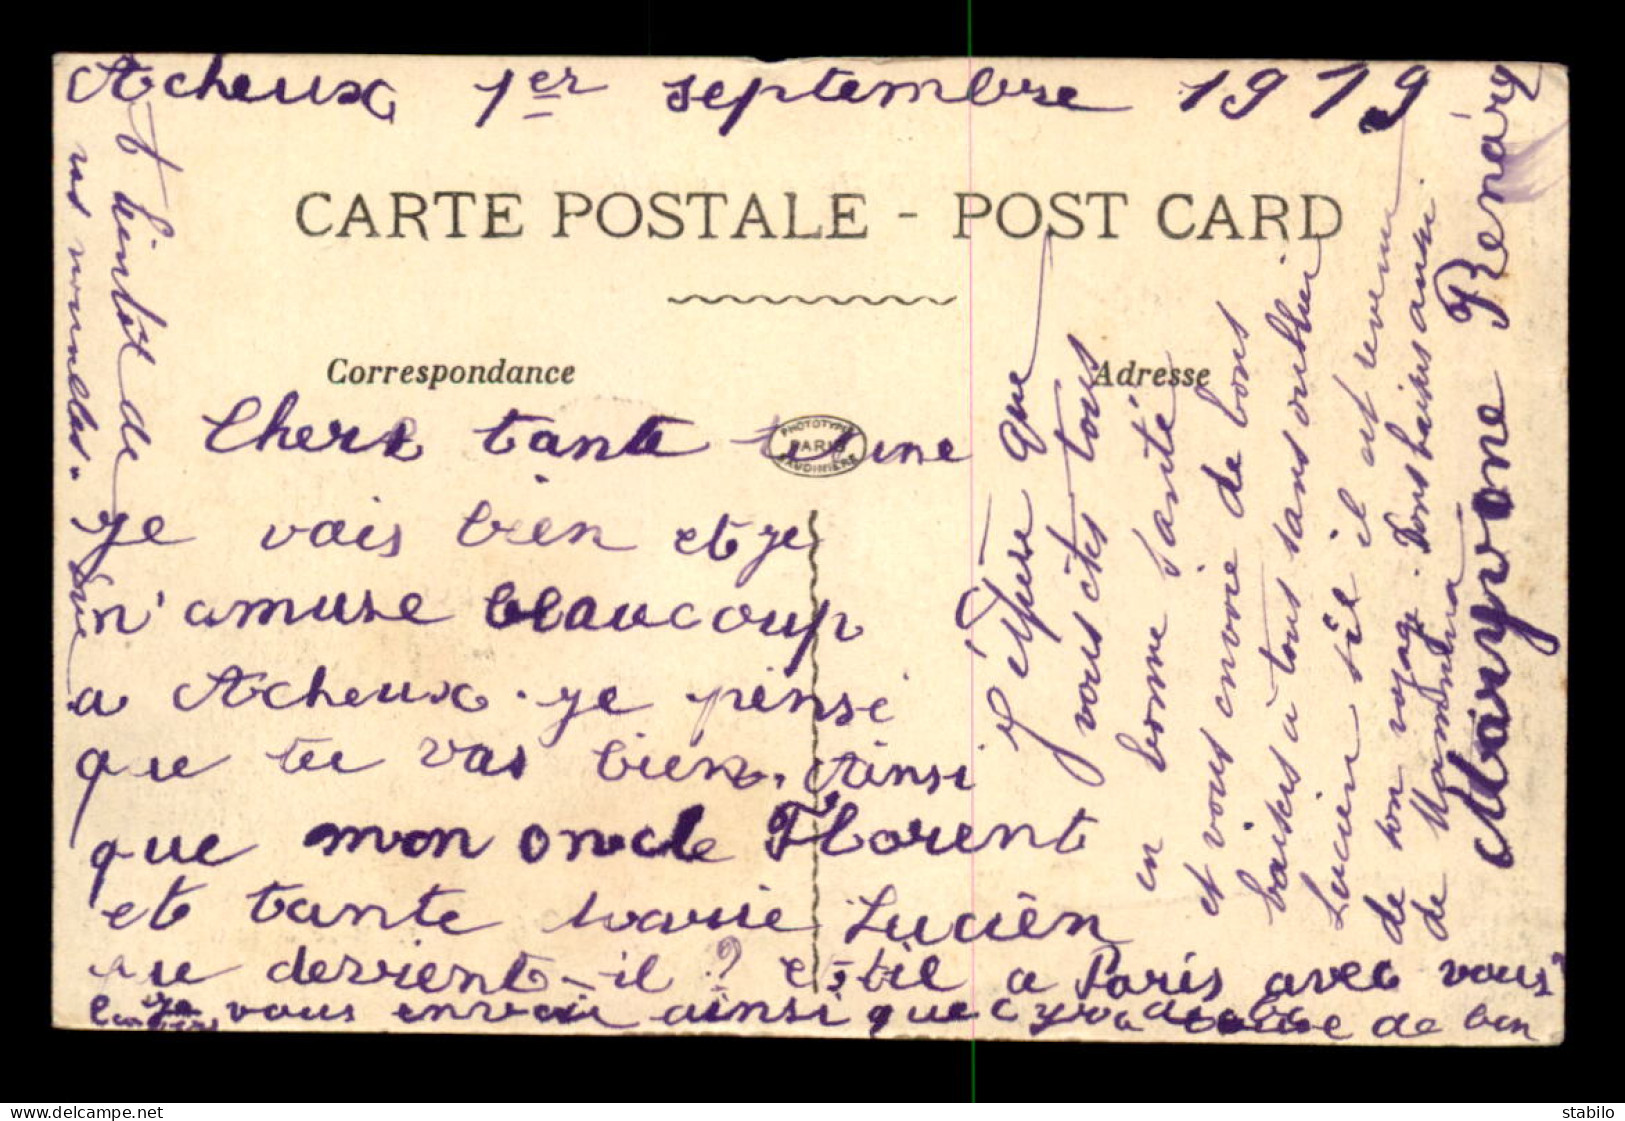 Acheux 1er septembre 1919
CARTE POSTALE - POST CARD
Correspondance
Adresse
PHOTOTYPIE
PARIS
BAUDINIÈRE
Chere tante
je vais bien et je
m'amuse beaucoup
a Acheux. je pense
que tu vas bien. Ainsi
que mon oncle Florent
et tante Marie Lucien
que devient-il ? est-il a Paris avec vous
je vous envoie ainsi que de ben
J'espère que
vous êtes tous
en bonne santé
et vous envoie de bons
baisers à tous sans oublier
Lucien s'il il est revenu
de son voyage. Bons baisers aussi
de Mamdina
Maryvone Renáry
A bientôt de
vos nouvelles.
delcampe.net
stabilo